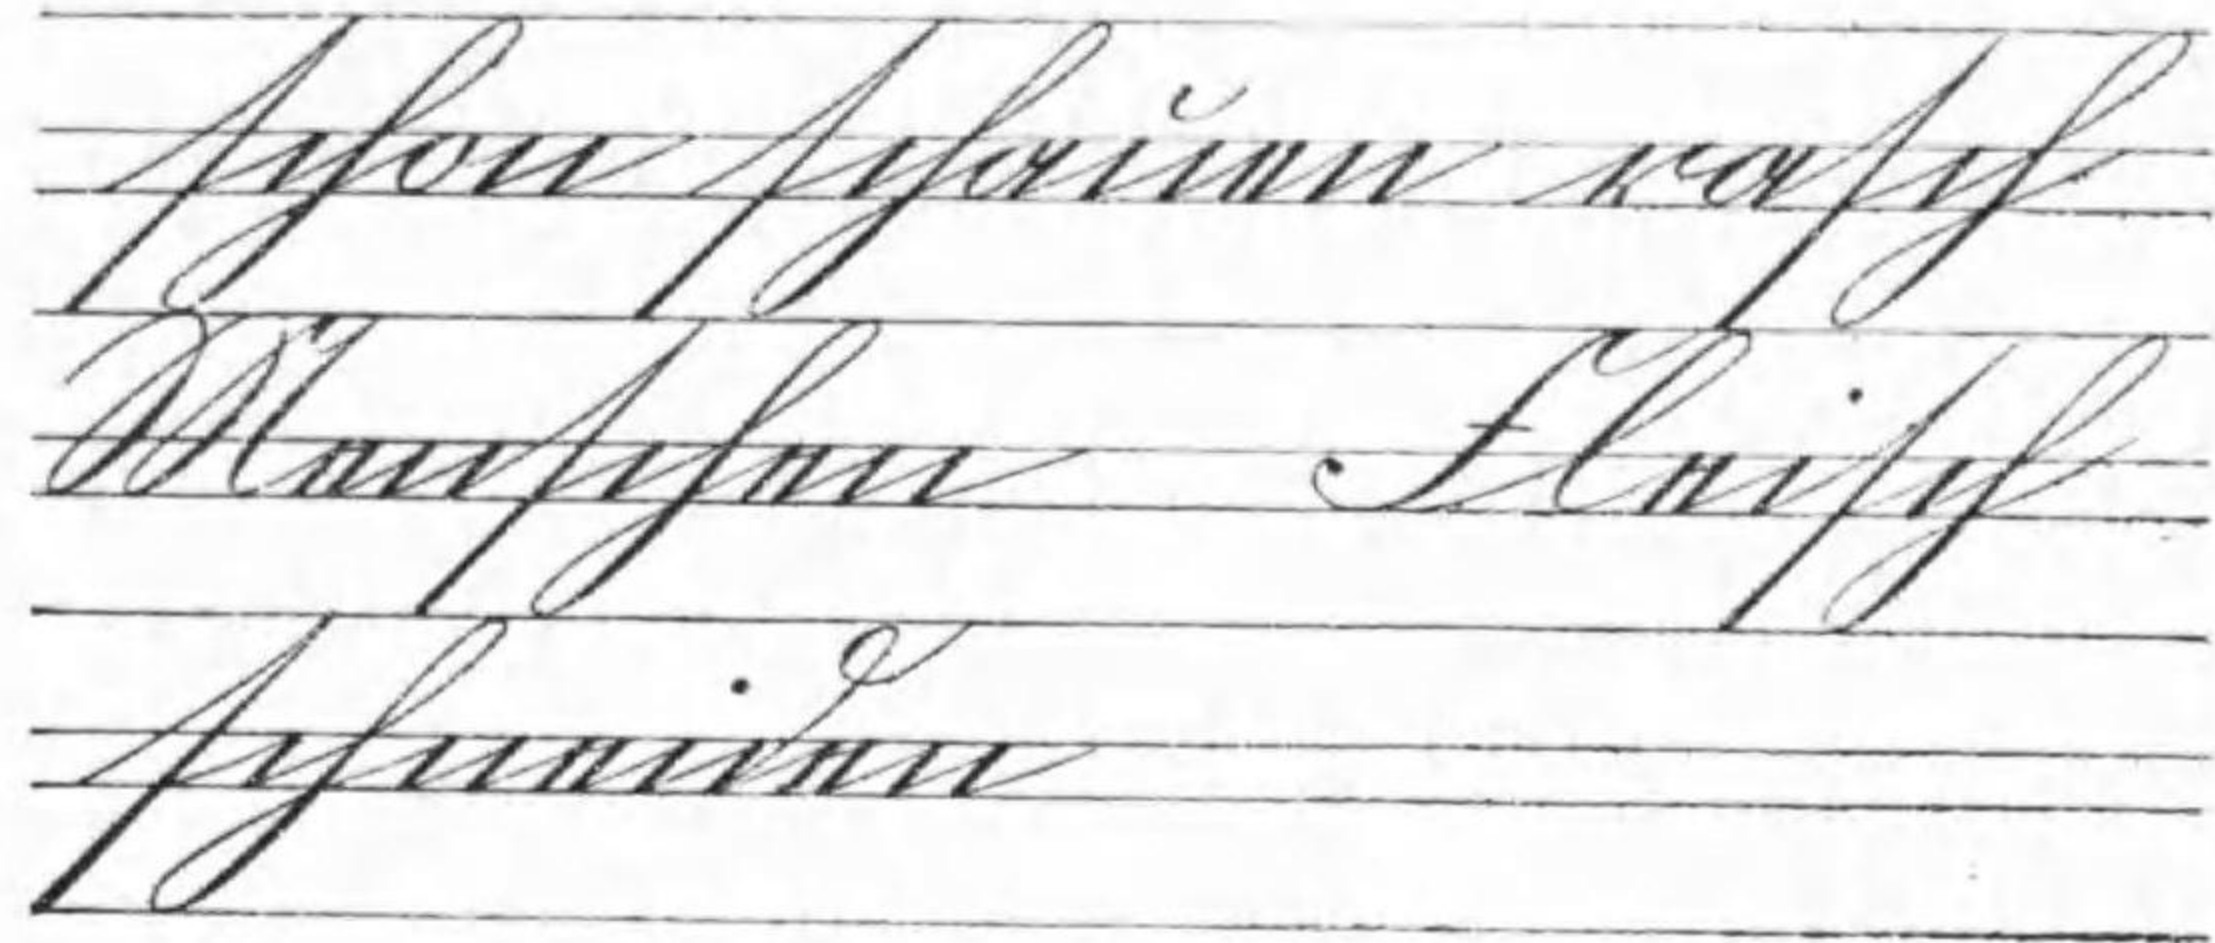 schon schauen rasch
Menschen Fleisch
schneiden